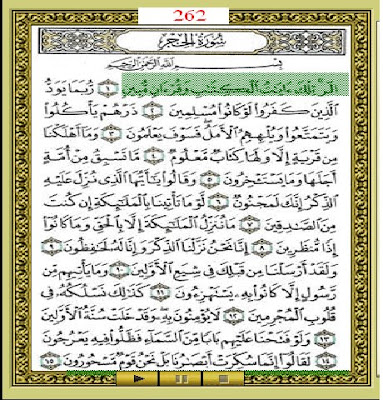 262
سُورَةُ الحِجْرِ
بِسْمِ اللَّهِ الرَّحْمَٰنِ الرَّحِيمِ
الٓر ۚ تِلْكَ ءَايَٰتُ ٱلْكِتَٰبِ وَقُرْءَانٍ مُّبِينٍ ١ رُّبَمَا يَوَدُّ
ٱلَّذِينَ كَفَرُوا۟ لَوْ كَانُوا۟ مُسْلِمِينَ ٢ ذَرْهُمْ يَأْكُلُوا۟
وَيَتَمَتَّعُوا۟ وَيُلْهِهِمُ ٱلْأَمَلُ ۖ فَسَوْفَ يَعْلَمُونَ ٣ وَمَآ أَهْلَكْنَا
مِن قَرْيَةٍ إِلَّا وَلَهَا كِتَابٌ مَّعْلُومٌ ٤ مَّا تَسْبِقُ مِنْ أُمَّةٍ
أَجَلَهَا وَمَا يَسْتَـْٔخِرُونَ ٥ وَقَالُوا۟ يَٰٓأَيُّهَا ٱلَّذِى نُزِّلَ عَلَيْهِ
ٱلذِّكْرُ إِنَّكَ لَمَجْنُونٌ ٦ لَّوْ مَا تَأْتِينَا بِٱلْمَلَٰٓئِكَةِ إِن كُنتَ
مِنَ ٱلصَّٰدِقِينَ ٧ مَا نُنَزِّلُ ٱلْمَلَٰٓئِكَةَ إِلَّا بِٱلْحَقِّ وَمَا كَانُوٓا۟
إِذًا مُّنظَرِينَ ٨ إِنَّا نَحْنُ نَزَّلْنَا ٱلذِّكْرَ وَإِنَّا لَهُۥ لَحَٰفِظُونَ ٩
وَلَقَدْ أَرْسَلْنَا مِن قَبْلِكَ فِى شِيَعِ ٱلْأَوَّلِينَ ١٠ وَمَا يَأْتِيهِم مِّن
رَّسُولٍ إِلَّا كَانُوا۟ بِهِۦ يَسْتَهْزِءُونَ ١١ كَذَٰلِكَ نَسْلُكُهُۥ فِى
قُلُوبِ ٱلْمُجْرِمِينَ ١٢ لَا يُؤْمِنُونَ بِهِۦ ۖ وَقَدْ خَلَتْ سُنَّةُ ٱلْأَوَّلِينَ
١٣ وَلَوْ فَتَحْنَا عَلَيْهِم بَابًا مِّنَ ٱلسَّمَآءِ فَظَلُّوا۟ فِيهِ يَعْرُجُونَ
١٤ لَقَالُوٓا۟ إِنَّمَا سُكِّرَتْ أَبْصَٰرُنَا بَلْ نَحْنُ قَوْمٌ مَّسْحُورُونَ ١٥